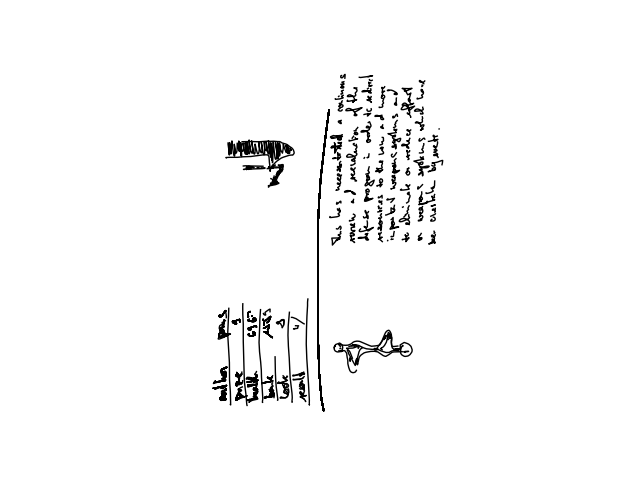 This has necessitated a continuous
review and reevaluation of the
defense program in order to redirect
resources to the new and more
important weapons systems and
to eliminate or reduce effort
on weapons systems which have
been overtaken by events.
author
prize 9
health 6967
bank
code
results